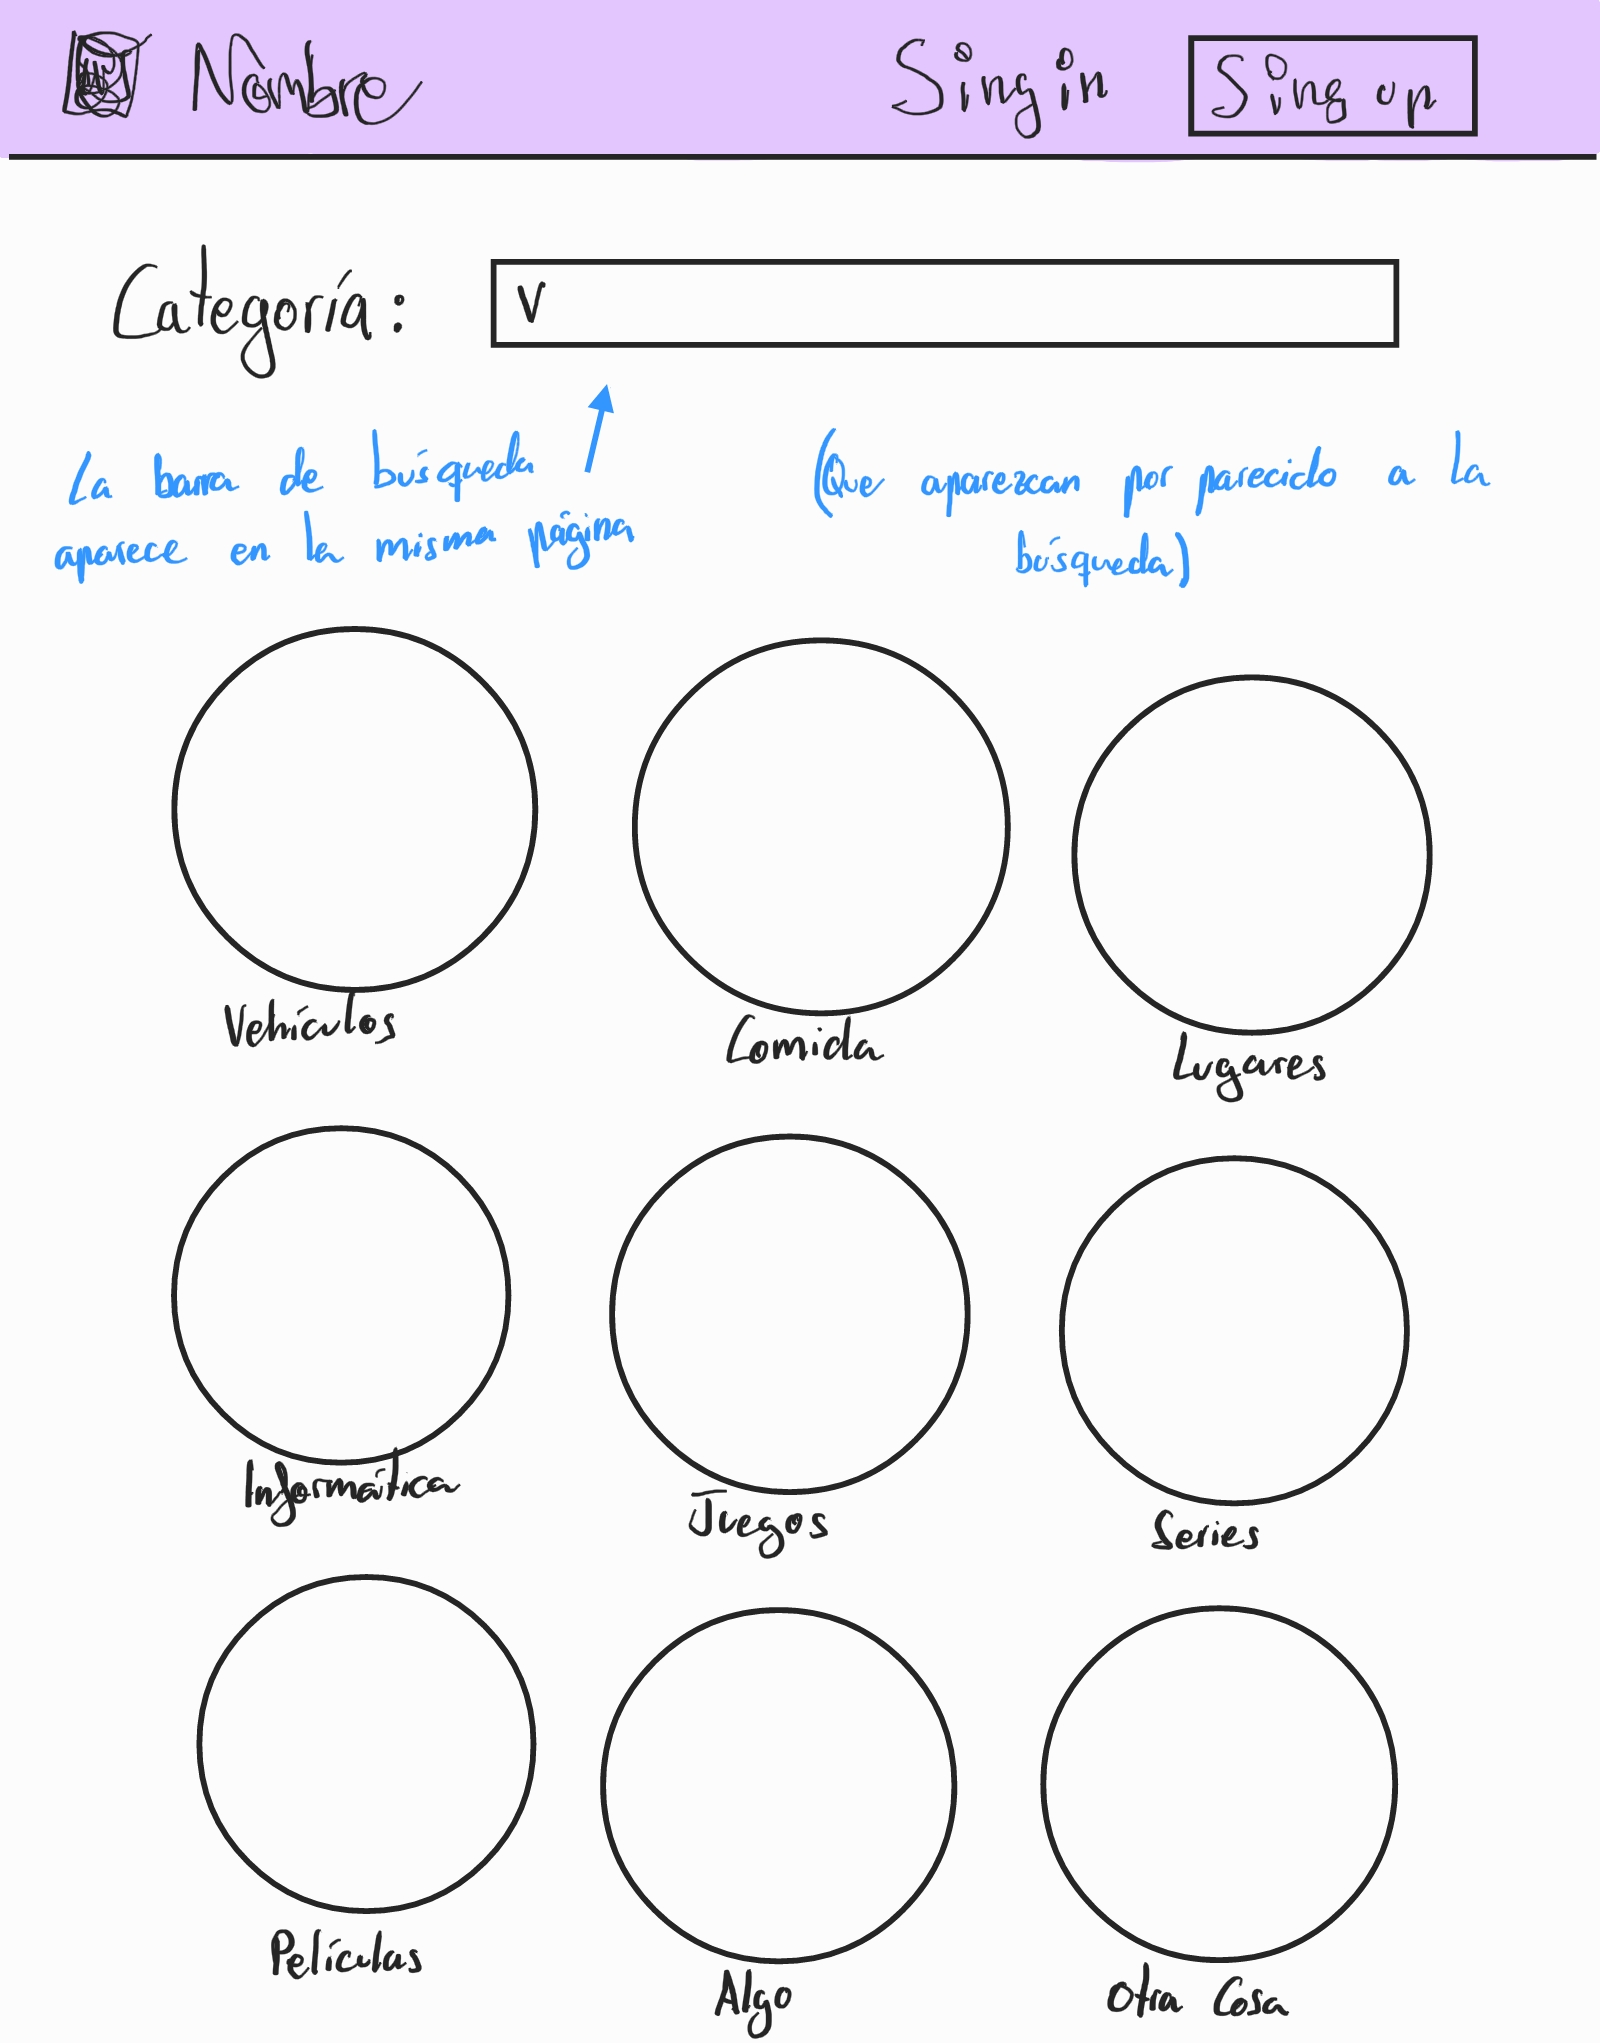 Nombre
Sing in
Sing up
Categoría:
V
La barra de búsqueda
aparece en la misma página
(Que aparezcan por parecido a la
búsqueda)
Vehículos
Comida
Lugares
Informática
Juegos
Series
Películas
Algo
Otra Cosa